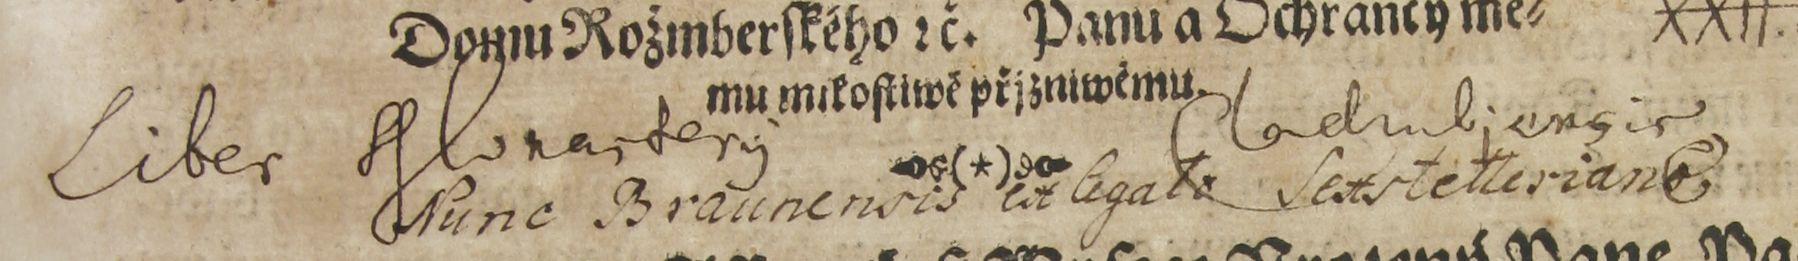 Domu Rožmberského ꝛč. Panu a Ochrancy mé⸗ XXII.
mu milostiwě přjzniwému.
Liber Monasterij Cladrubiensis
❧(*)☙
Nunc Braunensis ex legato Sextstetteriano